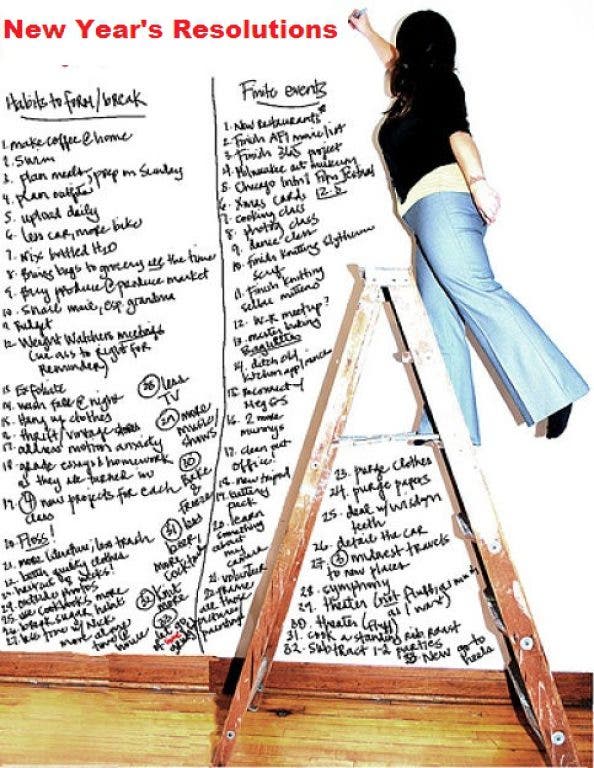 New Year's Resolutions
Habits to form/break
1. make coffee @ home
2. Swim
3. plan meals, prep on Sunday
4. plan outfits
5. upload daily
6. less car, more bike
7. Nix bottled H2O
8. Bring bags to grocery all the time
9. Buy produce @ produce market
10. Snail mail, esp. grandma
11. Budget
12. Weight Watchers meetings
(see ass to right for
Reminder)
13. Exfoliate
14. wash face @ night
15. Hang up clothes
16. thrift/vintage
17. address motion anxiety
18. grade essays & homework
as they are turned in
19. 4 new projects for each
class
20. Floss!
21. more literature, less trash
22. better quality clothes
23. haircut weeks!
24. outside photos
25. use cookbooks more
26. habit
27. less time w/ Nick
more alone
time @
house
28 less
TV
29 more
music/
shows
30
Bake
&
Freeze
31 less
beer,
more
cocktails
32 knit
more
33
Finite events
1. New restaurants*
2. Finish API music list
3. Finish 365 project
4. Milwaukee art museum
5. Chicago Int'l Film Festival
6. Xmas cards 12-5
7. cooking class
8. photog class
9. dance class
10. Finish knitting Slytherin
scarf
11. Finish knitting
selbu mittens
12. W-R meetup?
13. master baking
Baguettes
14. ditch old
kitchen appliances
15. reconnect w/
Meg G-S
16. 2 more
murmys
17. clean part
office
18. new tripod
19. battery
pack
20. learn
something
about
my
camera
21. volunteer
22. frame
all those
pictures/
paintings
23. purge clothes
24. purge papers
25. deal w/ wisdom
teeth
26. detail the car
27. 3 midwest travels
to new places
28. symphony
29. theater (not fluffy, as
30. theater (fluffy as I want)
31. cook a standing rib roast
32. Subtract 1-2 parties
33. New go-to
heels